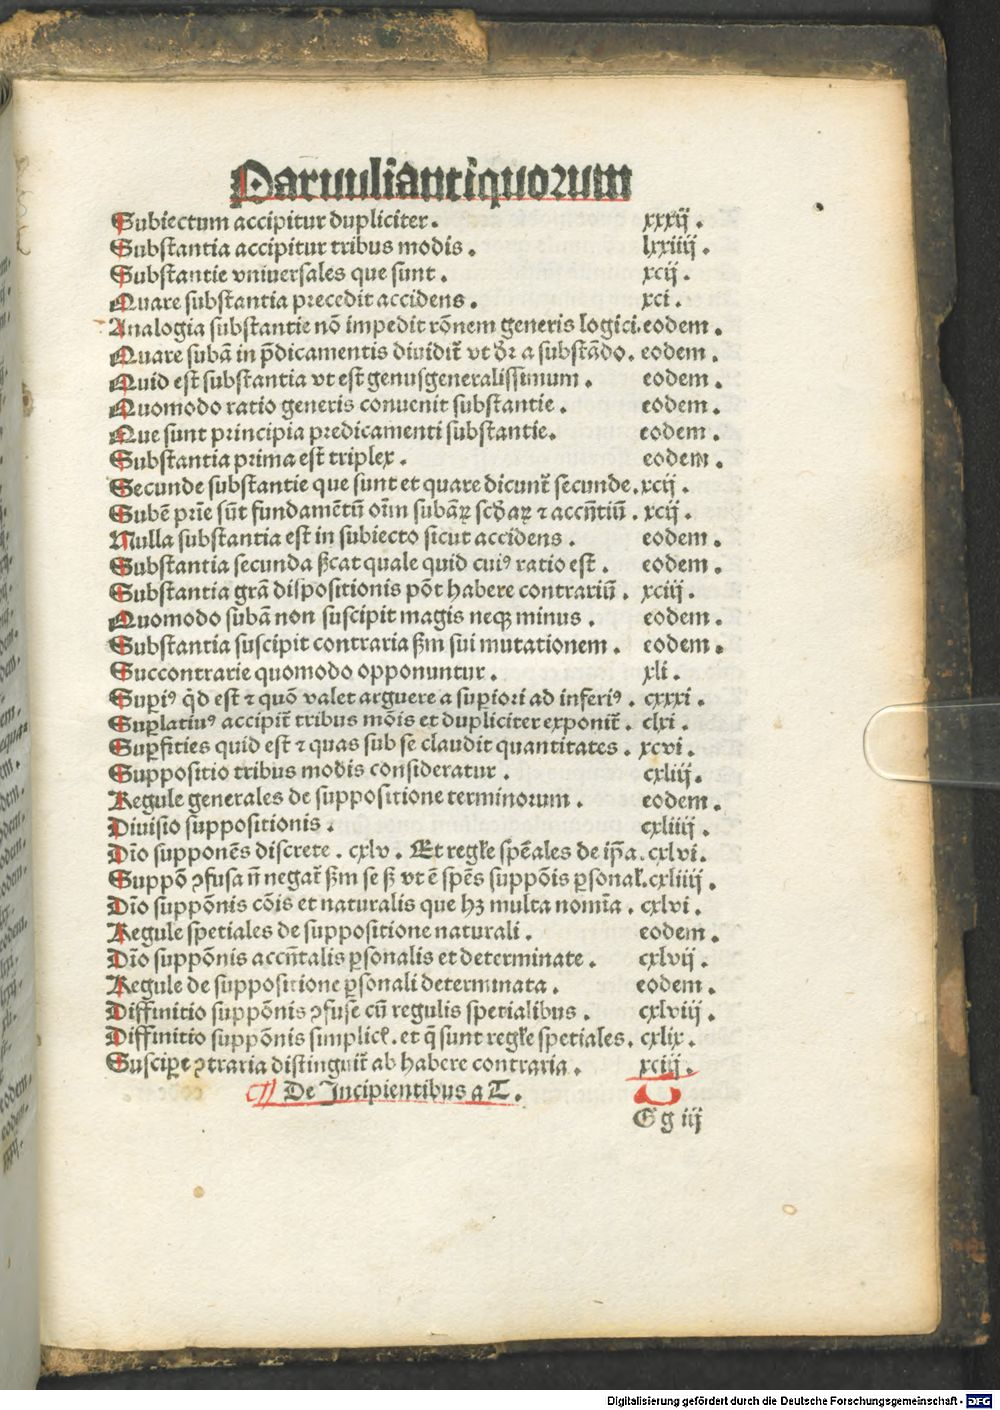 Paruuli antiquorum
Subiectum accipitur dupliciter. xxxij.
Substantia accipitur tribus modis. lxxiiij.
Substantie vniuersales que sunt. xcij.
Quare substantia precedit accidens. xci.
Analogia substantie nō impedit rōnem generis logici. eodem.
Quare subā in p̄dicamentis diuidit᷑ vt dr̄ a substādo. eodem.
Quid est substantia vt est genusgeneralissimum. eodem.
Quomodo ratio generis conuenit substantie. eodem.
Que sunt principia predicamenti substantie. eodem.
Substantia prima est triplex. eodem.
Secunde substantie que sunt et quare dicunt᷑ secunde. xcij.
Subē prīe sūt fundamētū oīm subāꝝ scd̓aꝝ ⁊ accn̄tiū. xcij.
Nulla substantia est in subiecto sicut accidens. eodem.
Substantia secunda ẜcat quale quid cuiꝰ ratio est. eodem.
Substantia grā dispositionis pōt habere contrariū. xciij.
Quomodo subā non suscipit magis neqꝫ minus. eodem.
Substantia suscipit contraria ẜm sui mutationem. eodem.
Succontrarie quomodo opponuntur. xli.
Supiꝰ qd̓ est ⁊ quō valet arguere a supiori ad inferiꝰ. cxxxi.
Suꝑlatiuꝰ accipit᷑ tribus mōis et dupliciter exponit᷑. clxi.
Suꝑfities quid est ⁊ quas sub se claudit quantitates. xcvi.
Suppositio tribus modis consideratur. cxliij.
Regule generales de suppositione terminorum. eodem.
Diuisio suppositionis. cxliiij.
Dīo supponēs discrete. cxlv. Et regl̓e spēales de ip̄a. cxlvi.
Suppō ꝯfusa n̄ negat᷑ ẜm se ẜ vt ē spēs suppōis ꝑsonal̓. cxliiij.
Dīo suppōnis cōis et naturalis que hꝫ multa nomīa. cxlvi.
Regule spetiales de suppositione naturali. eodem.
Dīo suppōnis accn̄talis ꝑsonalis et determinate. cxlvij.
Regule de suppositione ꝑsonali determinata. eodem.
Diffinitio suppōnis ꝯfuse cū regulis spetialibus. cxlviij.
Diffinitio suppōnis simplicl̓. et q̄ sunt regl̓e spetiales. cxlix.
Susciꝑe ꝯtraria distinguit᷑ ab habere contraria. xciij.
De Incipientibus a T.
G g iij
Digitalisierung gefördert durch die Deutsche Forschungsgemeinschaft - DFG